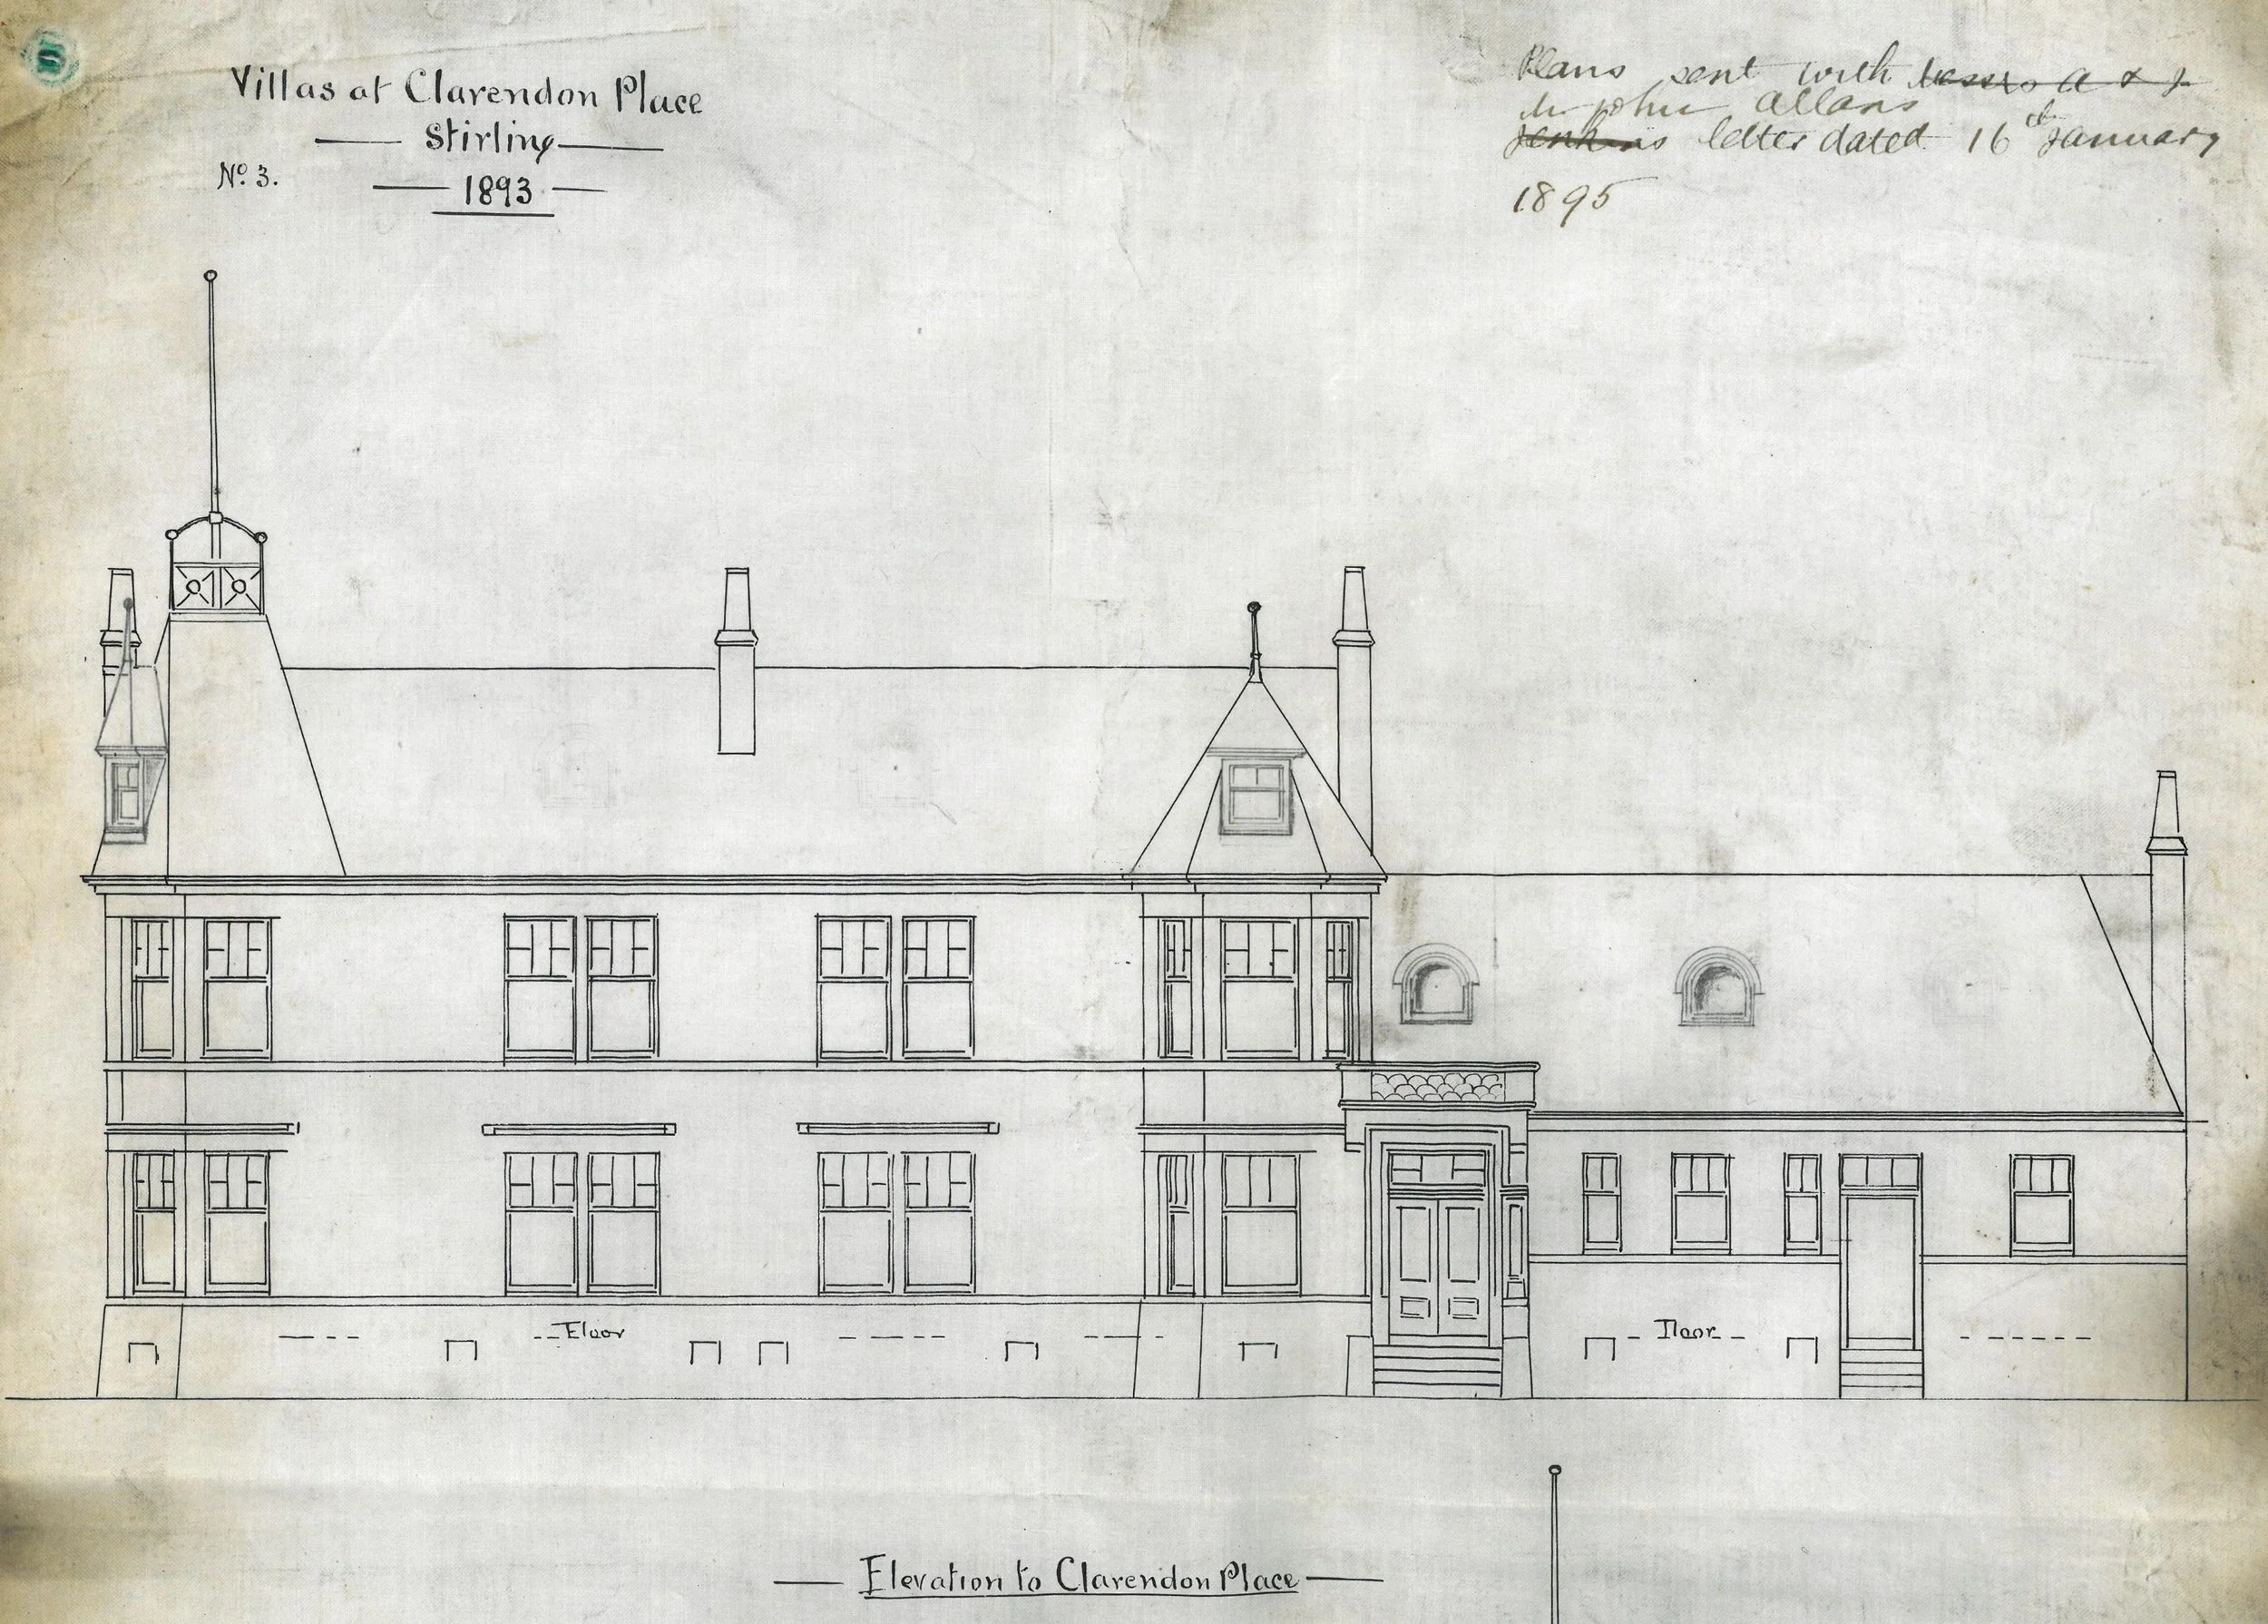 Villas at Clarendon Place
Stirling
No. 3.
1893
Plans sent with Messrs A & J
Mr John Allans
Jenkins letter dated 16th January
1895
Floor
Floor
Elevation to Clarendon Place